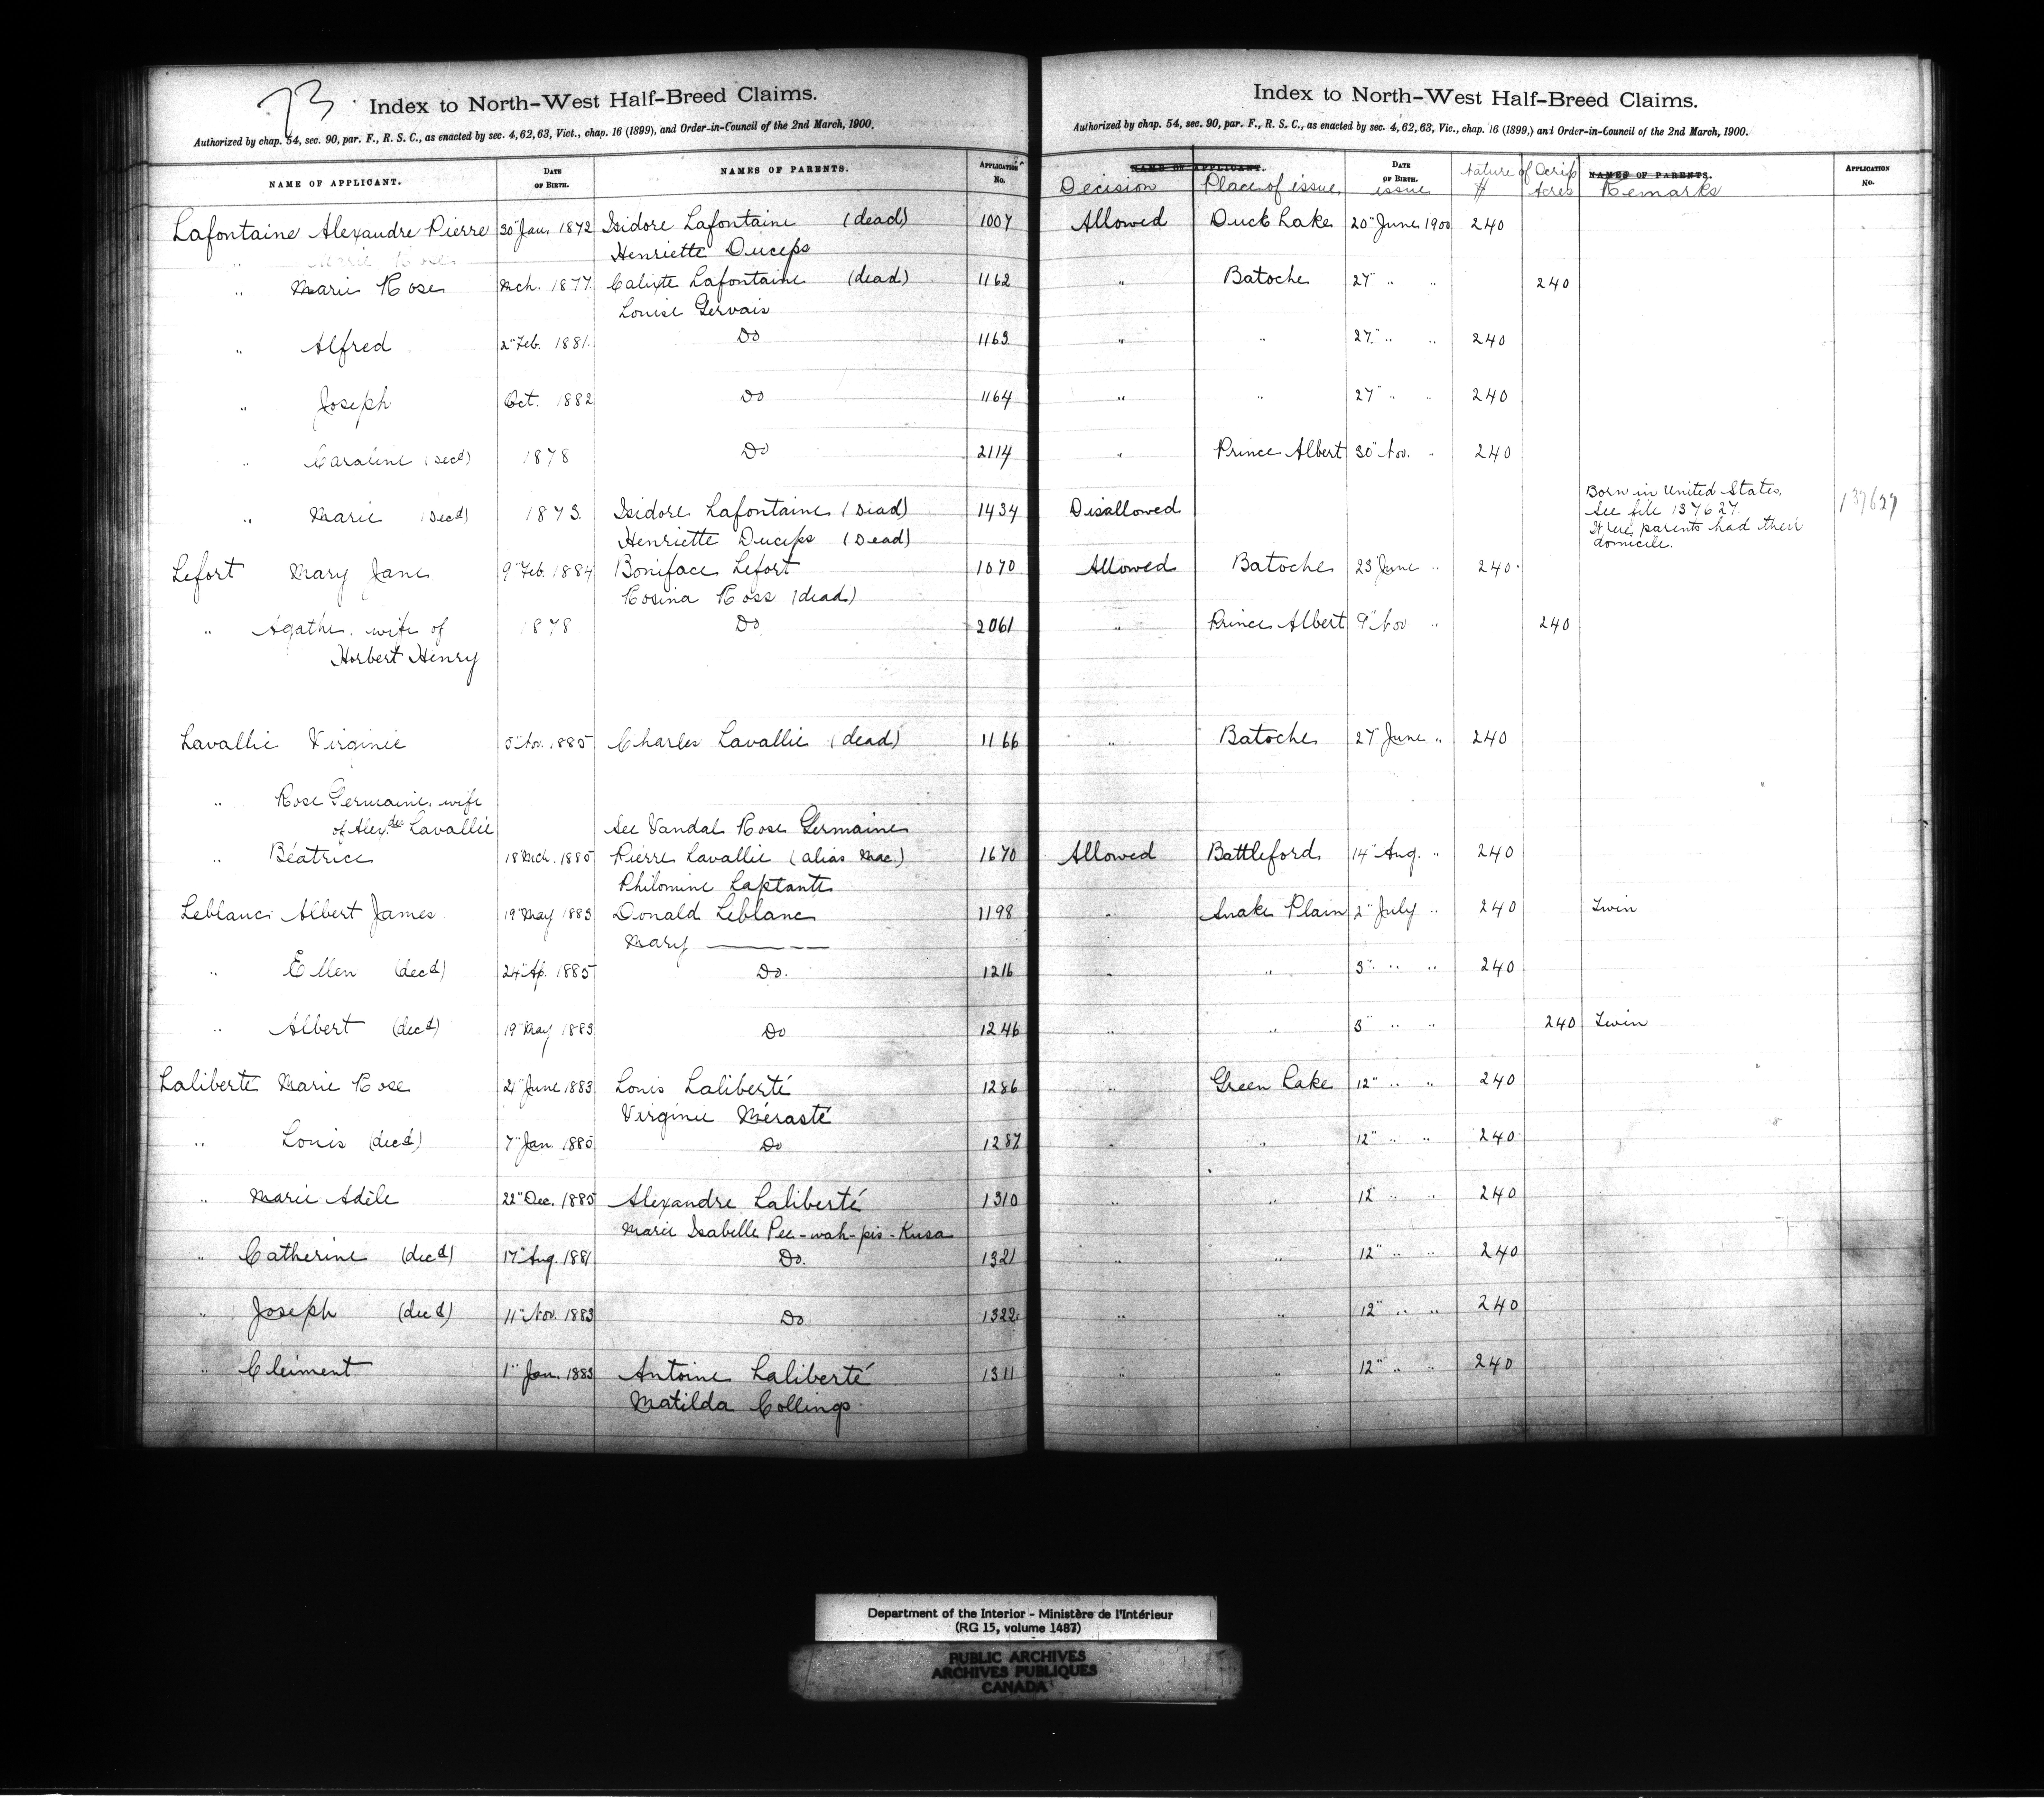 73
Index to North-West Half-Breed Claims.
Authorized by chap. 54, sec. 90, par. F., R. S. C., as enacted by sec. 4, 62, 63, Vict., chap. 16 (1899), and Order-in-Council of the 2nd March, 1900.
NAME OF APPLICANT. DATE OF BIRTH. NAMES OF PARENTS. APPLICATION No.
Lafontaine Alexandre Pierre 30" Jan. 1872 Isidore Lafontaine (dead) 1007
Henriette Duceps
" Marie Rose Mch. 1877. Calixte Lafontaine (dead) 1162
Louise Gervais
" Alfred 2" Feb. 1881. Do 1163
" Joseph Oct. 1882 Do 1164
" Caroline (decd) 1878 Do 2114
" Marie (Decd) 1873. Isidore Lafontaine (Dead) 1434
Henriette Duceps (Dead)
Lefort Mary Jane 9" Feb. 1884 Boniface Lefort 1070
Rosina Ross (dead)
" Agathe, wife of 1878 Do 2061
Norbert Henry
Lavallie Virginie 5" Nov. 1885 Charles Lavallie (dead) 1166
" Rose Germaine, wife
of Alexdre Lavallie See Vandal Rose Germaine
" Béatrice 18" Mch. 1885 Pierre Lavallie (alias Mac.) 1670
Philomine Laplante
Leblanc Albert James 19" May 1883 Donald Leblanc 1198
Mary ———
" Ellen (decd) 24" Ap. 1885 Do. 1216
" Albert (decd) 19" May 1883 Do 1246
Laliberté Marie Rose 21" June 1883 Louis Laliberté 1286
Virginie Mérasté
" Louis (decd) 7" Jan. 1885 Do 1287
" Marie Adèle 22" Dec. 1885 Alexandre Laliberté 1310
Marie Isabelle Pee-wah-pis-Kusa
" Catherine (decd) 17" Aug. 1881 Do. 1321
" Joseph (decd) 11" Nov. 1883 Do 1322
" Clément 1" Jan. 1883 Antoine Laliberté 1311
Matilda Collings
Index to North-West Half-Breed Claims.
Authorized by chap. 54, sec. 90, par. F., R. S. C., as enacted by sec. 4, 62, 63, Vic., chap. 16 (1899,) and Order-in-Council of the 2nd March, 1900.
NAME OF APPLICANT. DATE OF BIRTH. NAMES OF PARENTS. APPLICATION No.
Decision Place of issue issue Nature of Scrip $ Acres Remarks
Allowed Duck Lake 20" June 1900 240
" Batoche 27" " " 240
" " 27" " " 240
" " 27" " " 240
" Prince Albert 30" Nov. " 240
Disallowed Born in United States,
See file 137627.
Where parents had their
domicile.
137627
Allowed Batoche 23" June " 240
" Prince Albert 9" Nov " 240
" Batoche 27" June " 240
Allowed Battleford 14" Aug. " 240
" Snake Plain 2" July " 240 Twin
" " 3" " " 240
" " 3" " " 240 Twin
" Green Lake 12" " " 240
" " 12" " " 240
" " 12" " " 240
" " 12" " " 240
" " 12" " " 240
" " 12" " " 240
Department of the Interior - Ministère de l'Intérieur
(RG 15, volume 1487)
PUBLIC ARCHIVES
ARCHIVES PUBLIQUES
CANADA